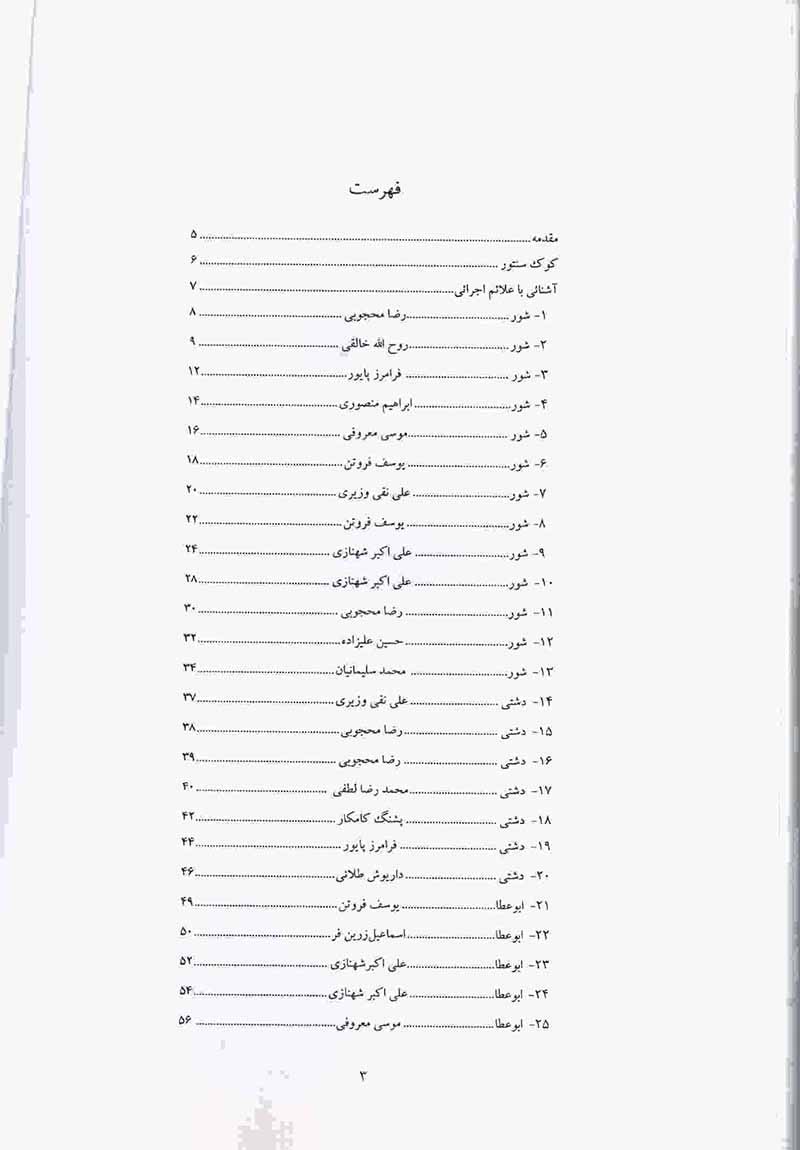 فهرست
مقدمه........................................ ۵
کوک سنتور ........................................ ۶
آشنائی با علائم اجرائی........................................ ۷
۱- شور ....................رضا محجوبی .................... ۸
۲- شور ....................روح الله خالقی .................... ۹
۳- شور .................... فرامرز پایور....................۱۲
۴- شور.................... ابراهیم منصوری ....................۱۴
۵- شور ....................موسی معروفی ....................۱۶
۶- شور.................... یوسف فروتن....................۱۸
۷- شور.................... علی نقی وزیری ....................۲۰
۸- شور.................... یوسف فروتن ....................۲۲
۹- شور.................... علی اکبر شهنازی ....................۲۴
۱۰- شور.................... علی اکبر شهنازی ....................۲۸
۱۱- شور.................... رضا محجوبی ....................۳۰
۱۲- شور....................حسین علیزاده....................۳۲
۱۳- شور.................... محمد سلیمانیان....................۳۴
۱۴- دشتی .................... علی نقی وزیری ....................۳۷
۱۵- دشتی ....................رضا محجوبی....................۳۸
۱۶- دشتی .................... رضا محجوبی ....................۳۹
۱۷- دشتی ....................محمد رضا لطفی ....................۴۰
۱۸- دشتی .................... پشنگ کامکار ....................۴۲
۱۹- دشتی .................... فرامرز پایور ....................۴۴
۲۰- دشتی ....................داریوش طلائی....................۴۶
۲۱- ابوعطا....................یوسف فروتن ....................۴۹
۲۲- ابوعطا....................اسماعیل زرین فر....................۵۰
۲۳- ابوعطا....................علی اکبر شهنازی ....................۵۲
۲۴- ابوعطا.................... علی اکبر شهنازی ....................۵۴
۲۵- ابوعطا .................... موسی معروفی.................... ۵۶
۳